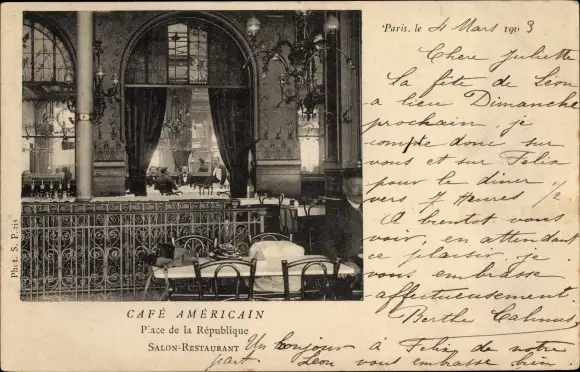 Paris, le 4 Mars 1903
Chere Juliette
La fête de Léon
a lieu Dimanche
prochain je
compte donc sur
vous et sur Felix
pour le diner
vers 7 Heures 1/2
A bientot vous
voir, en attendant
ce plaisir je
vous embrasse
affectueusement
Berthe
Phot. S. Paris
CAFÉ AMÉRICAIN
Place de la République
SALON-RESTAURANT
Un bonjour à Felix de notre
part Leon vous embrasse bien.